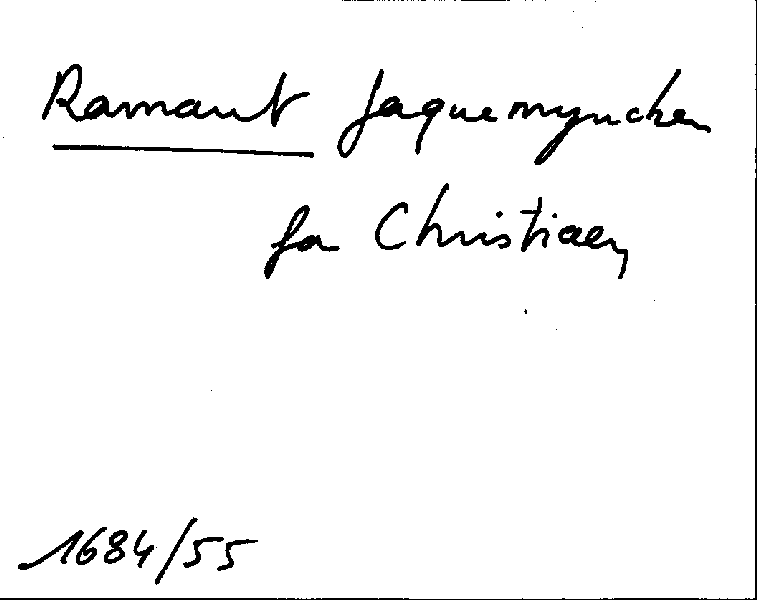 Ramaut Jaquemynchen
fa Christiaen
1684/55